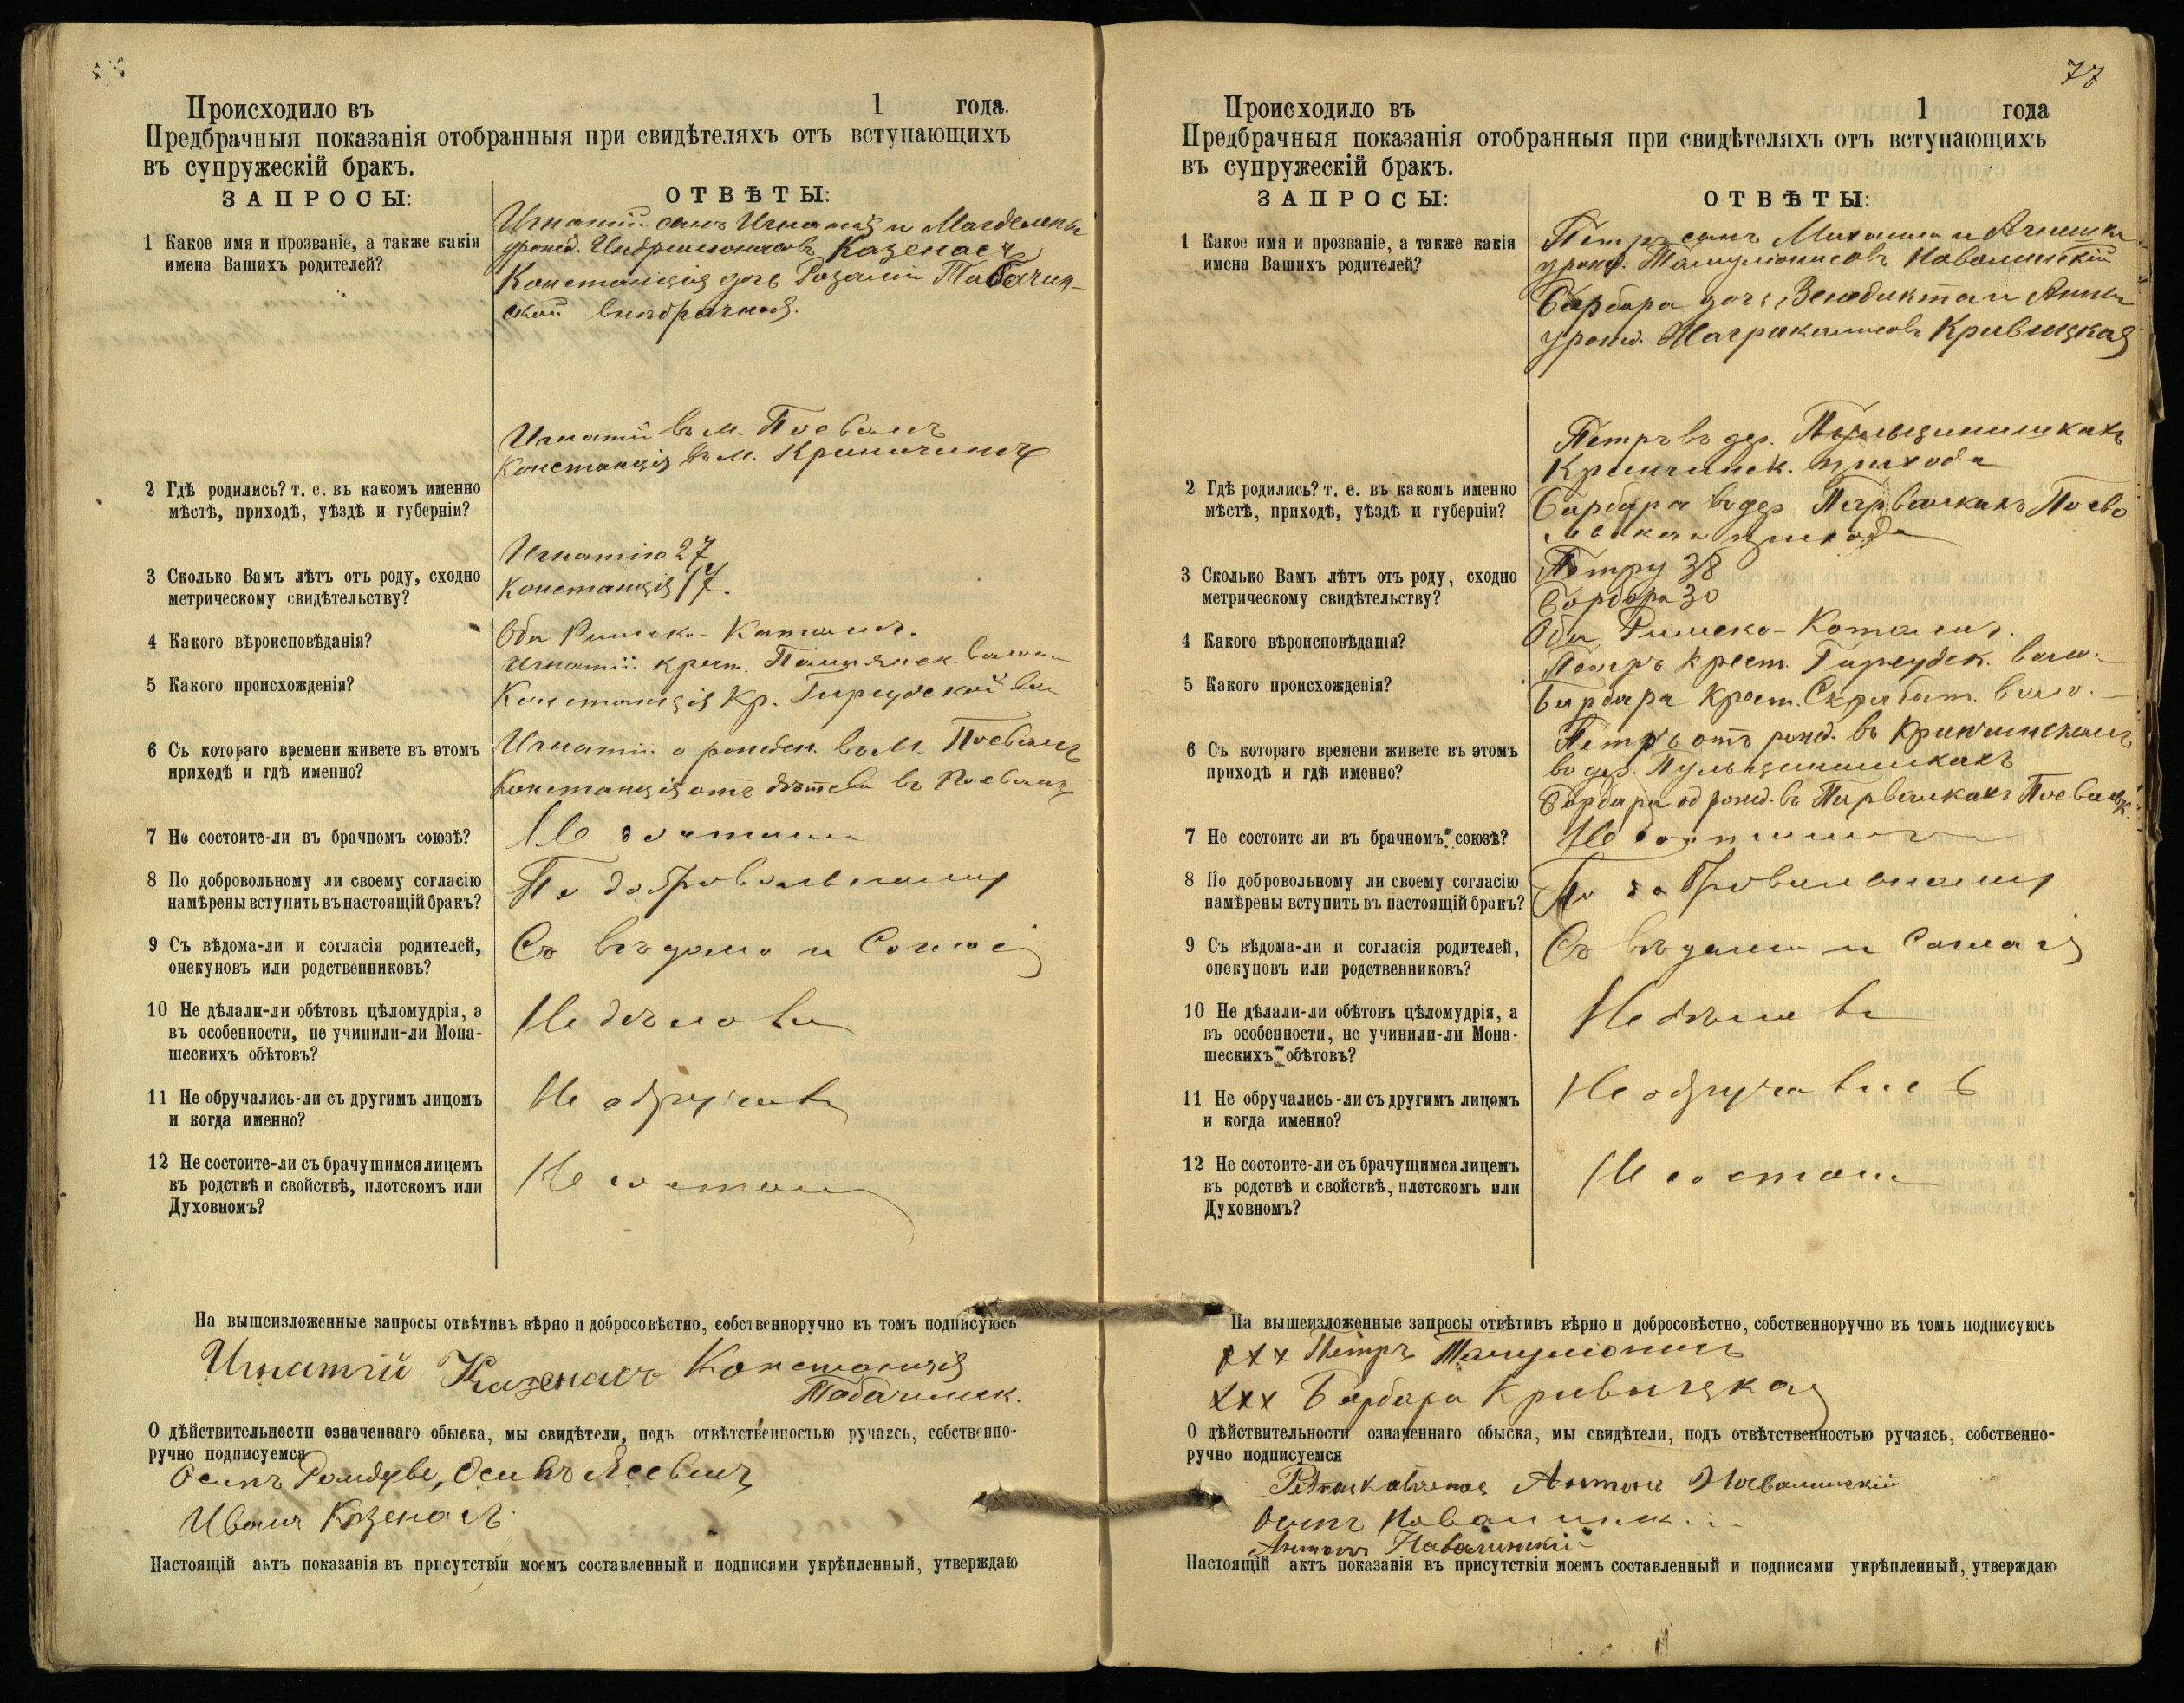 Происходило въ 1 года.
Предбрачныя показанія отобранныя при свидѣтеляхъ отъ вступающихъ
въ супружескій бракъ.
ЗАПРОСЫ: ОТВѢТЫ:
1 Какое имя и прозваніе, а также какія
имена Вашихъ родителей?
Игнатій сынъ Игнатія и Магдалены
урожд. Казенасъ
Констанція дочь Розалій Табачин-
ской внѣбрачная.
2 Гдѣ родились? т. е. въ какомъ именно
мѣстѣ, приходѣ, уѣздѣ и губерніи?
Игнатій въ м. Поеволь
Констанція въ м. Криничинъ
3 Сколько Вамъ лѣтъ отъ роду, сходно
метрическому свидѣтельству?
Игнатію 27
Констанція 17.
4 Какого вѣроисповѣданія?
Оба Римско-Католич.
5 Какого происхожденія?
Игнатій крест. волос.
Констанція кр. Гирсудской вол
6 Съ котораго времени живете въ этомъ
приходѣ и гдѣ именно?
Игнатій о рожден. въ м. Поеволь
Констанція отъ дѣтства въ Поеволь
7 Не состоите-ли въ брачномъ союзѣ?
Не состоим
8 По добровольному ли своему согласію
намѣрены вступить въ настоящій бракъ?
По добровольному
9 Съ вѣдома-ли и согласія родителей,
опекуновъ или родственниковъ?
Съ вѣдома и Согласія
10 Не дѣлали-ли обѣтовъ цѣломудрія, а
въ особенности, не учинили-ли Мона-
шескихъ обѣтовъ?
Не дѣлали
11 Не обручались-ли съ другимъ лицомъ
и когда именно?
Не обручались
12 Не состоите-ли съ брачущимся лицемъ
въ родствѣ и свойствѣ, плотскомъ или
Духовномъ?
Не состоим
На вышеизложенные запросы отвѣтивъ вѣрно и добросовѣстно, собственноручно въ томъ подписуюсь
Игнатій Казенасъ Констанція
Табачинск.
О дѣйствительности означеннаго обыска, мы свидѣтели, подъ отвѣтственностью ручаясь, собственно-
ручно подписуемся
Осипъ Осипъ Ясевичъ
Иванъ Казенас
Настоящій актъ показанія въ присутствіи моемъ составленный и подписями укрѣпленный, утверждаю
77
Происходило въ 1 года
Предбрачныя показанія отобранныя при свидѣтеляхъ отъ вступающихъ
въ супружескій бракъ.
ЗАПРОСЫ: ОТВѢТЫ:
1 Какое имя и прозваніе, а также какія
имена Вашихъ родителей?
Петръ сынъ Михаила и Агнешки
урожд. Тамулионисовъ Новалинскій
Барбара дочь Венедикта и Анны
урожд. Кривицкая
2 Гдѣ родились? т. е. въ какомъ именно
мѣстѣ, приходѣ, уѣздѣ и губерніи?
Петръ въ дер. Пульцинишкахъ
Кринчинск. прихода
Барбара въ дер Парвалкахъ Поево
льскаго прихода
3 Сколько Вамъ лѣтъ отъ роду, сходно
метрическому свидѣтельству?
Петру 38
Барбара 30
4 Какого вѣроисповѣданія?
Оба Римско-Католич.
5 Какого происхожденія?
Петръ крест. Гирсудск. воло.
Барбара крест. Скработ. воло.
6 Съ котораго времени живете въ этомъ
приходѣ и гдѣ именно?
Петръ отъ рожд. въ Кринчинскомъ
въ дер. Пульцинишкахъ
Барбара од рожд. въ Парвалкахъ Поевольск.
7 Не состоите ли въ брачномъ союзѣ?
Не состоим
8 По добровольному ли своему согласію
намѣрены вступить въ настоящій бракъ?
По добровольному
9 Съ вѣдома-ли и согласія родителей,
опекуновъ или родственниковъ?
Съ вѣдома и Согласія
10 Не дѣлали-ли обѣтовъ цѣломудрія, а
въ особенности, не учинили-ли Мона-
шескихъ обѣтовъ?
Не дѣлали
11 Не обручались-ли съ другимъ лицомъ
и когда именно?
Не обручались
12 Не состоите-ли съ брачущимся лицемъ
въ родствѣ и свойствѣ, плотскомъ или
Духовномъ?
Не состоим
На вышеизложенные запросы отвѣтивъ вѣрно и добросовѣстно, собственноручно въ томъ подписуюсь
ххх Петръ Тамулионисъ
ххх Барбара Кривицкая
О дѣйствительности означеннаго обыска, мы свидѣтели, подъ отвѣтственностью ручаясь, собственно-
ручно подписуемся
Антонъ Новалинскій
Осипъ Новалинск
Антонъ Новалинскій
Настоящій актъ показанія въ присутствіи моемъ составленный и подписями укрѣпленный, утверждаю